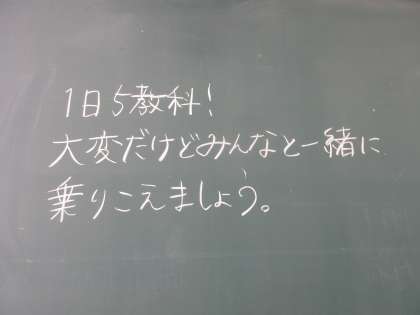 1日5教科!
大変だけどみんなと一緒に
乗りこえましょう。